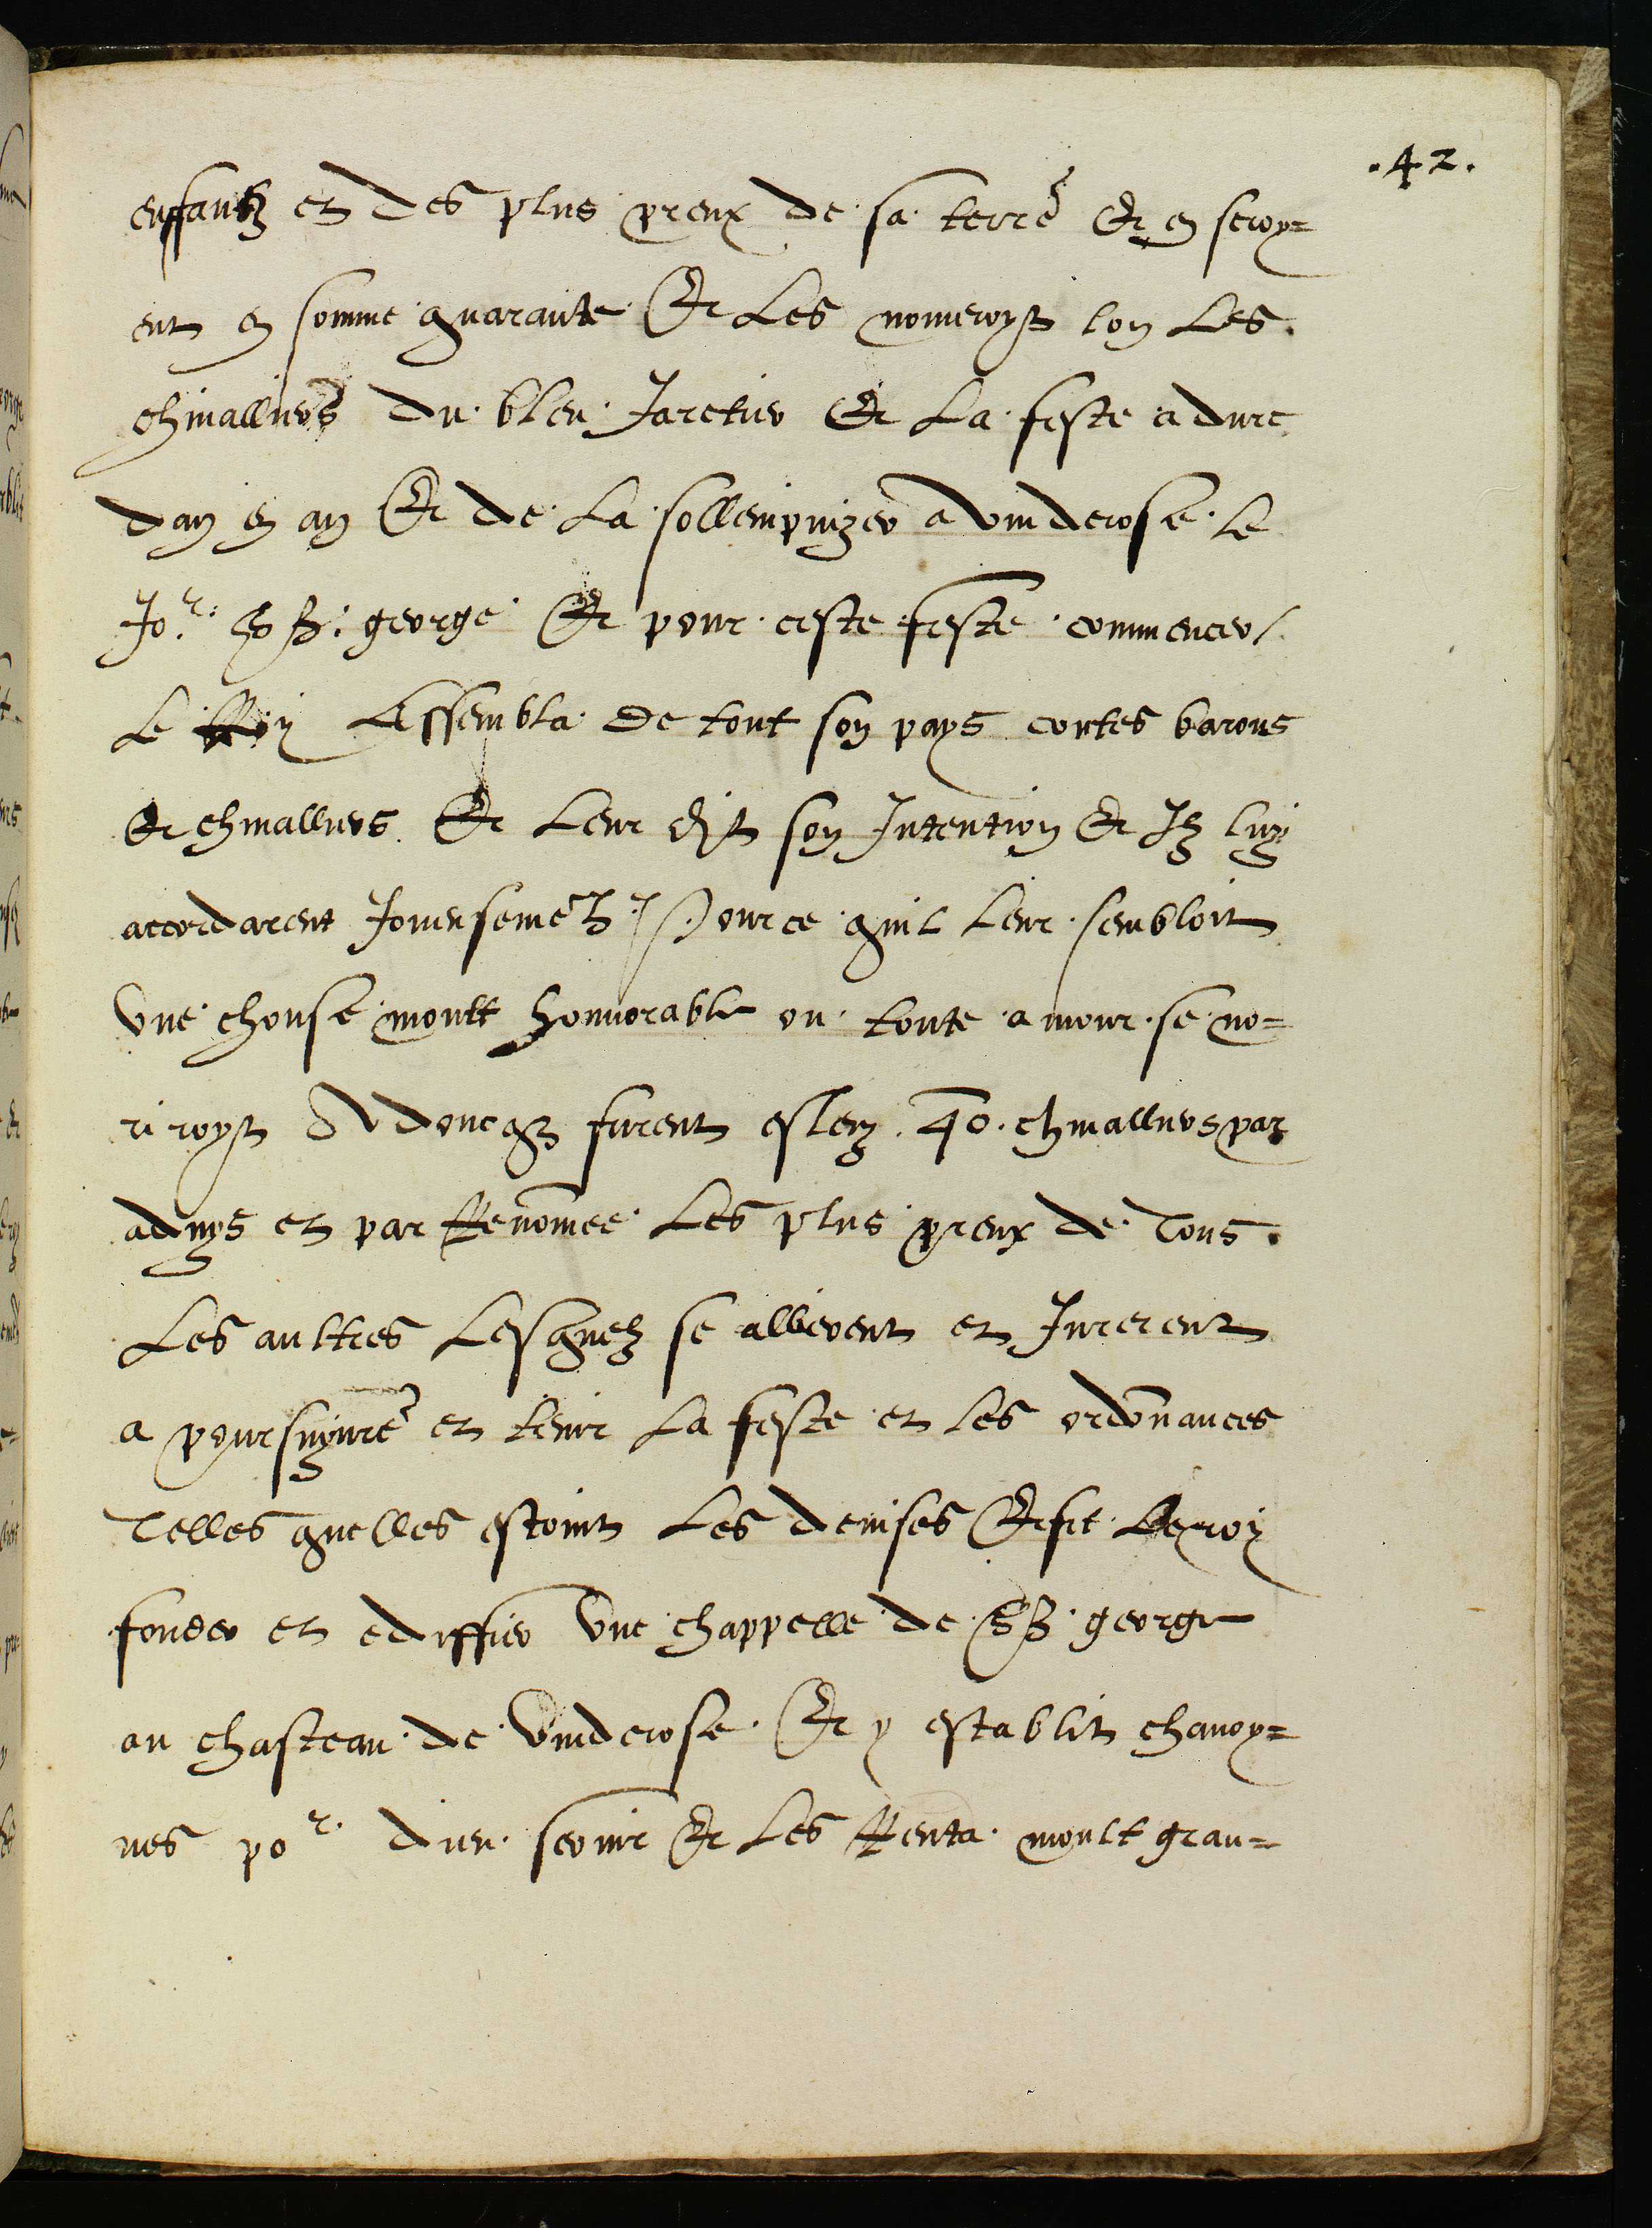 .42.
enffantz et des plus preux de sa terre Et en seroy=
ent en somme quarante Et Les nomeroyt lon Les.
chivalliers du bleu Jartier Et La feste a dure
dan en an Et de La sollempnizer a vinderose le
Jor. St. george Et pour ceste feste commencer
Le Roy Assembla De tout son pays contes barons
Et chivalliers. Et Leur dist son Intention Et Ilz luy
accordarent Joieusement Pource quil Leur sembloit
vne chouse moult honnorable ou toute amour se no=
riroyt Adoncqz furent esleuz .40. chivalliers par
aduys et par Renomee Les plus preux de Tous.
Les aultres Lesquelz se allierent et Jurerent
a poursuyure et tenir La feste et les ordonnances
Telles quelles estoint Les deuises Et fit Le roy
fonder et ediffier vne chappelle de St george
au chasteau de vinderose. Et y establit chanoy=
nes por. dieu seruir Et Les Renta moult gran=